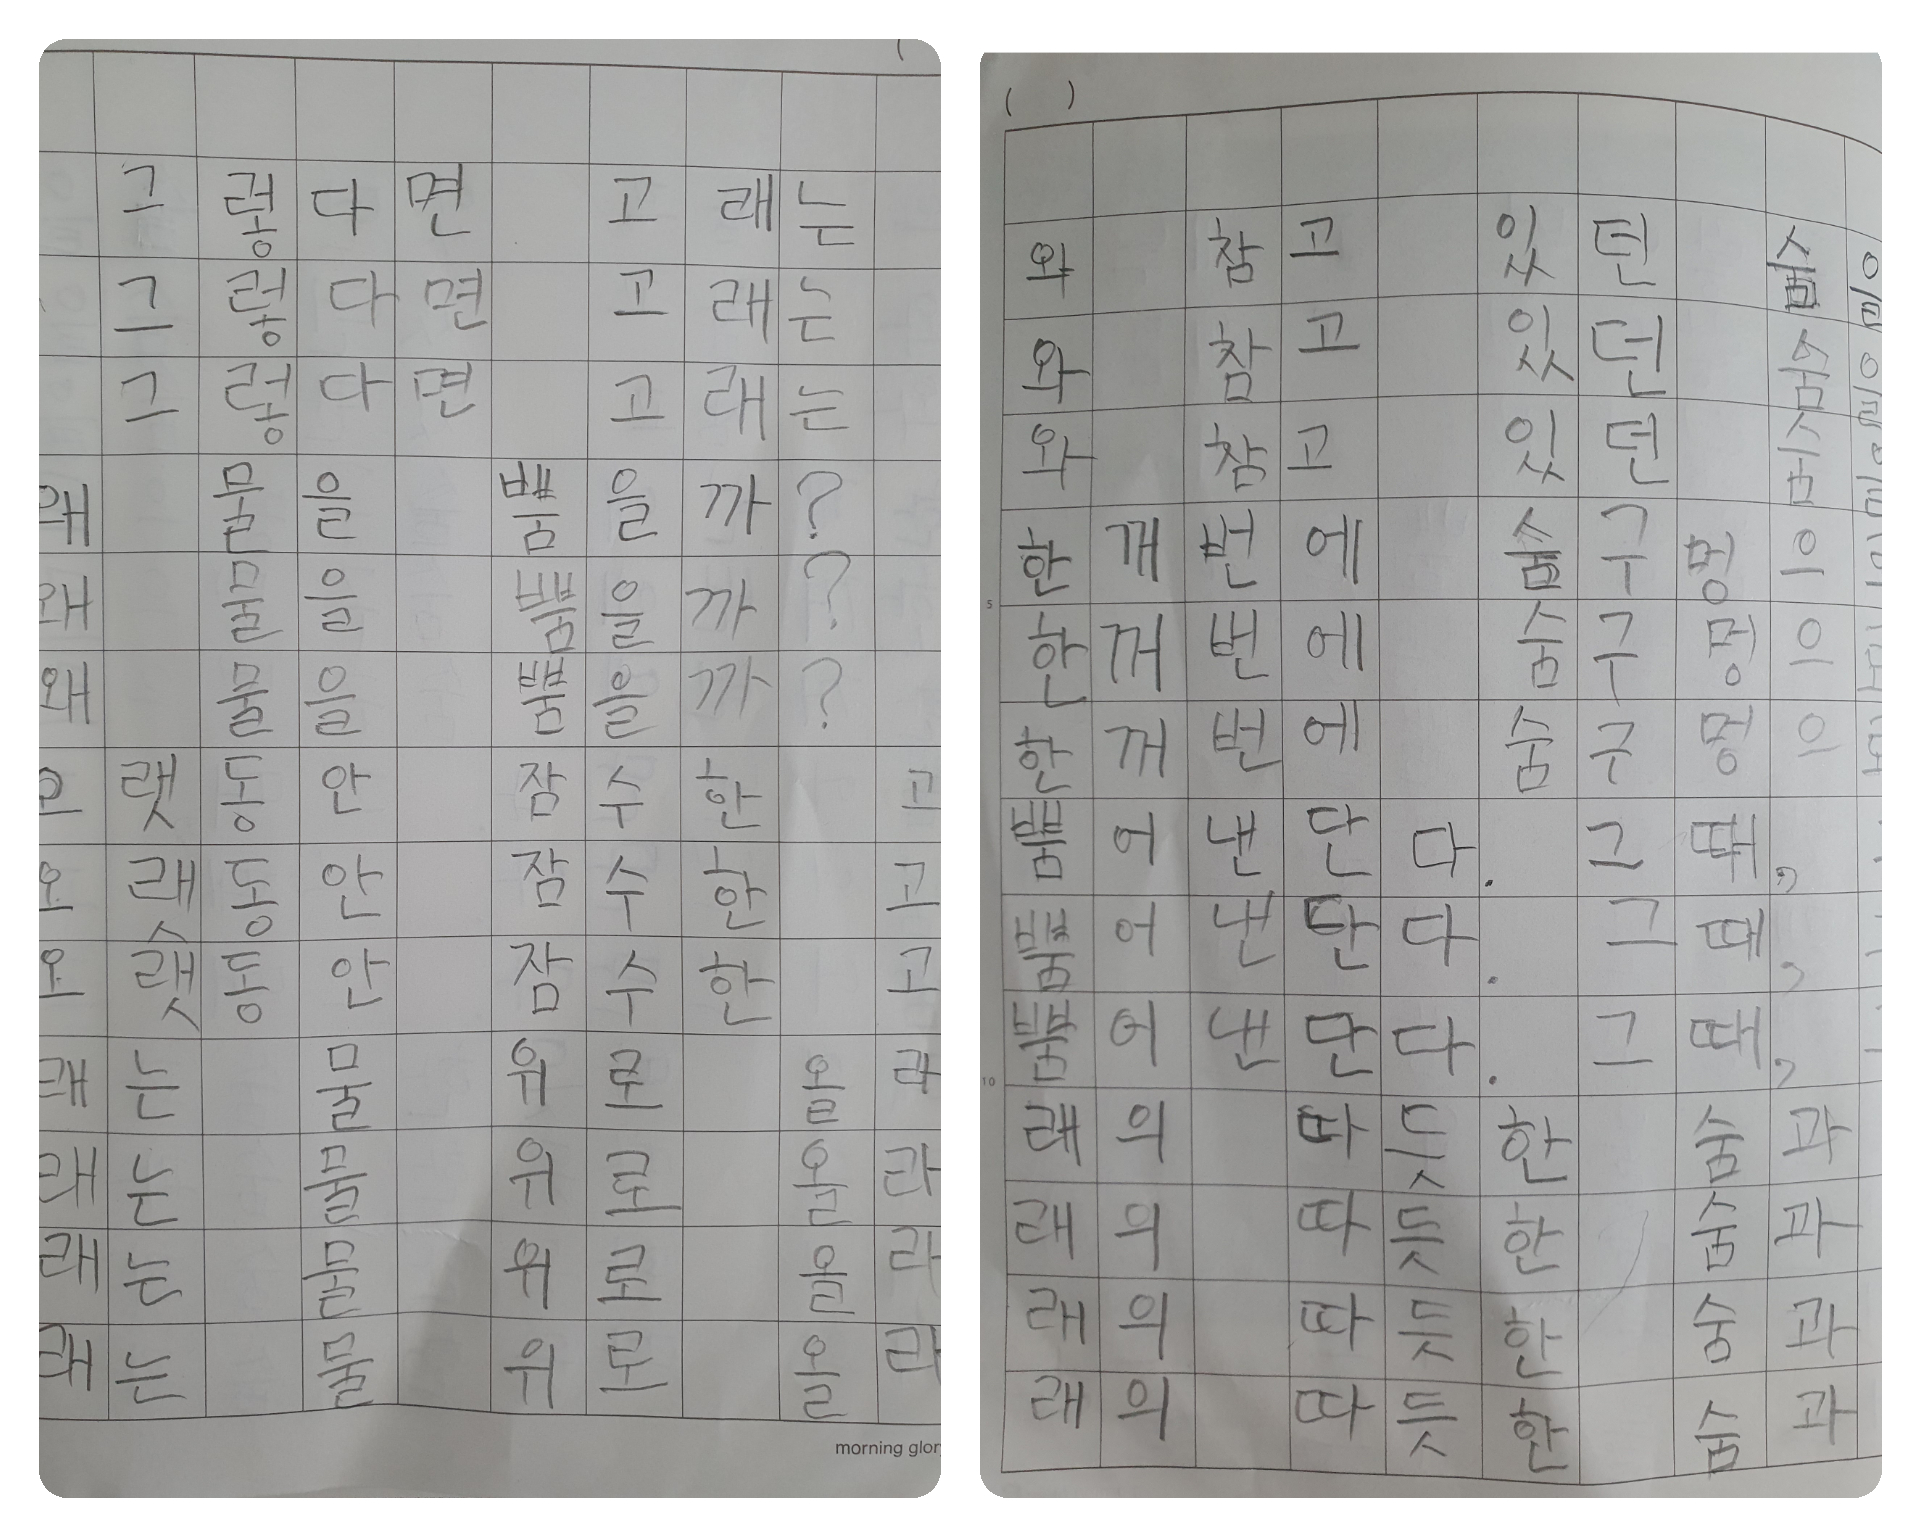 그렇다면 고래는
그렇다면 고래는
그렇다면 고래는
왜 물을 뿜을까?
왜 물을 뿜을까?
왜 물을 뿜을까?
오랫동안 잠수한 고
오랫동안 잠수한 고
오랫동안 잠수한 고
래는 물 위로 올라
래는 물 위로 올라
래는 물 위로 올라
래는 물 위로 올라
morning glor
( )
와 참고 있던 숨을
와 참고 있던 숨을
와 참고 있던 숨을
5
한꺠번에 숨구멍으
한꺼번에 숨구멍으
한꺼번에 숨구멍으
뿜어낸단다. 그때,
뿜어낸단다. 그때,
10
뿜어낸단다. 그때,
래의 따듯한 숨과
래의 따듯한 숨과
래의 따듯한 숨과
래의 따듯한 숨과